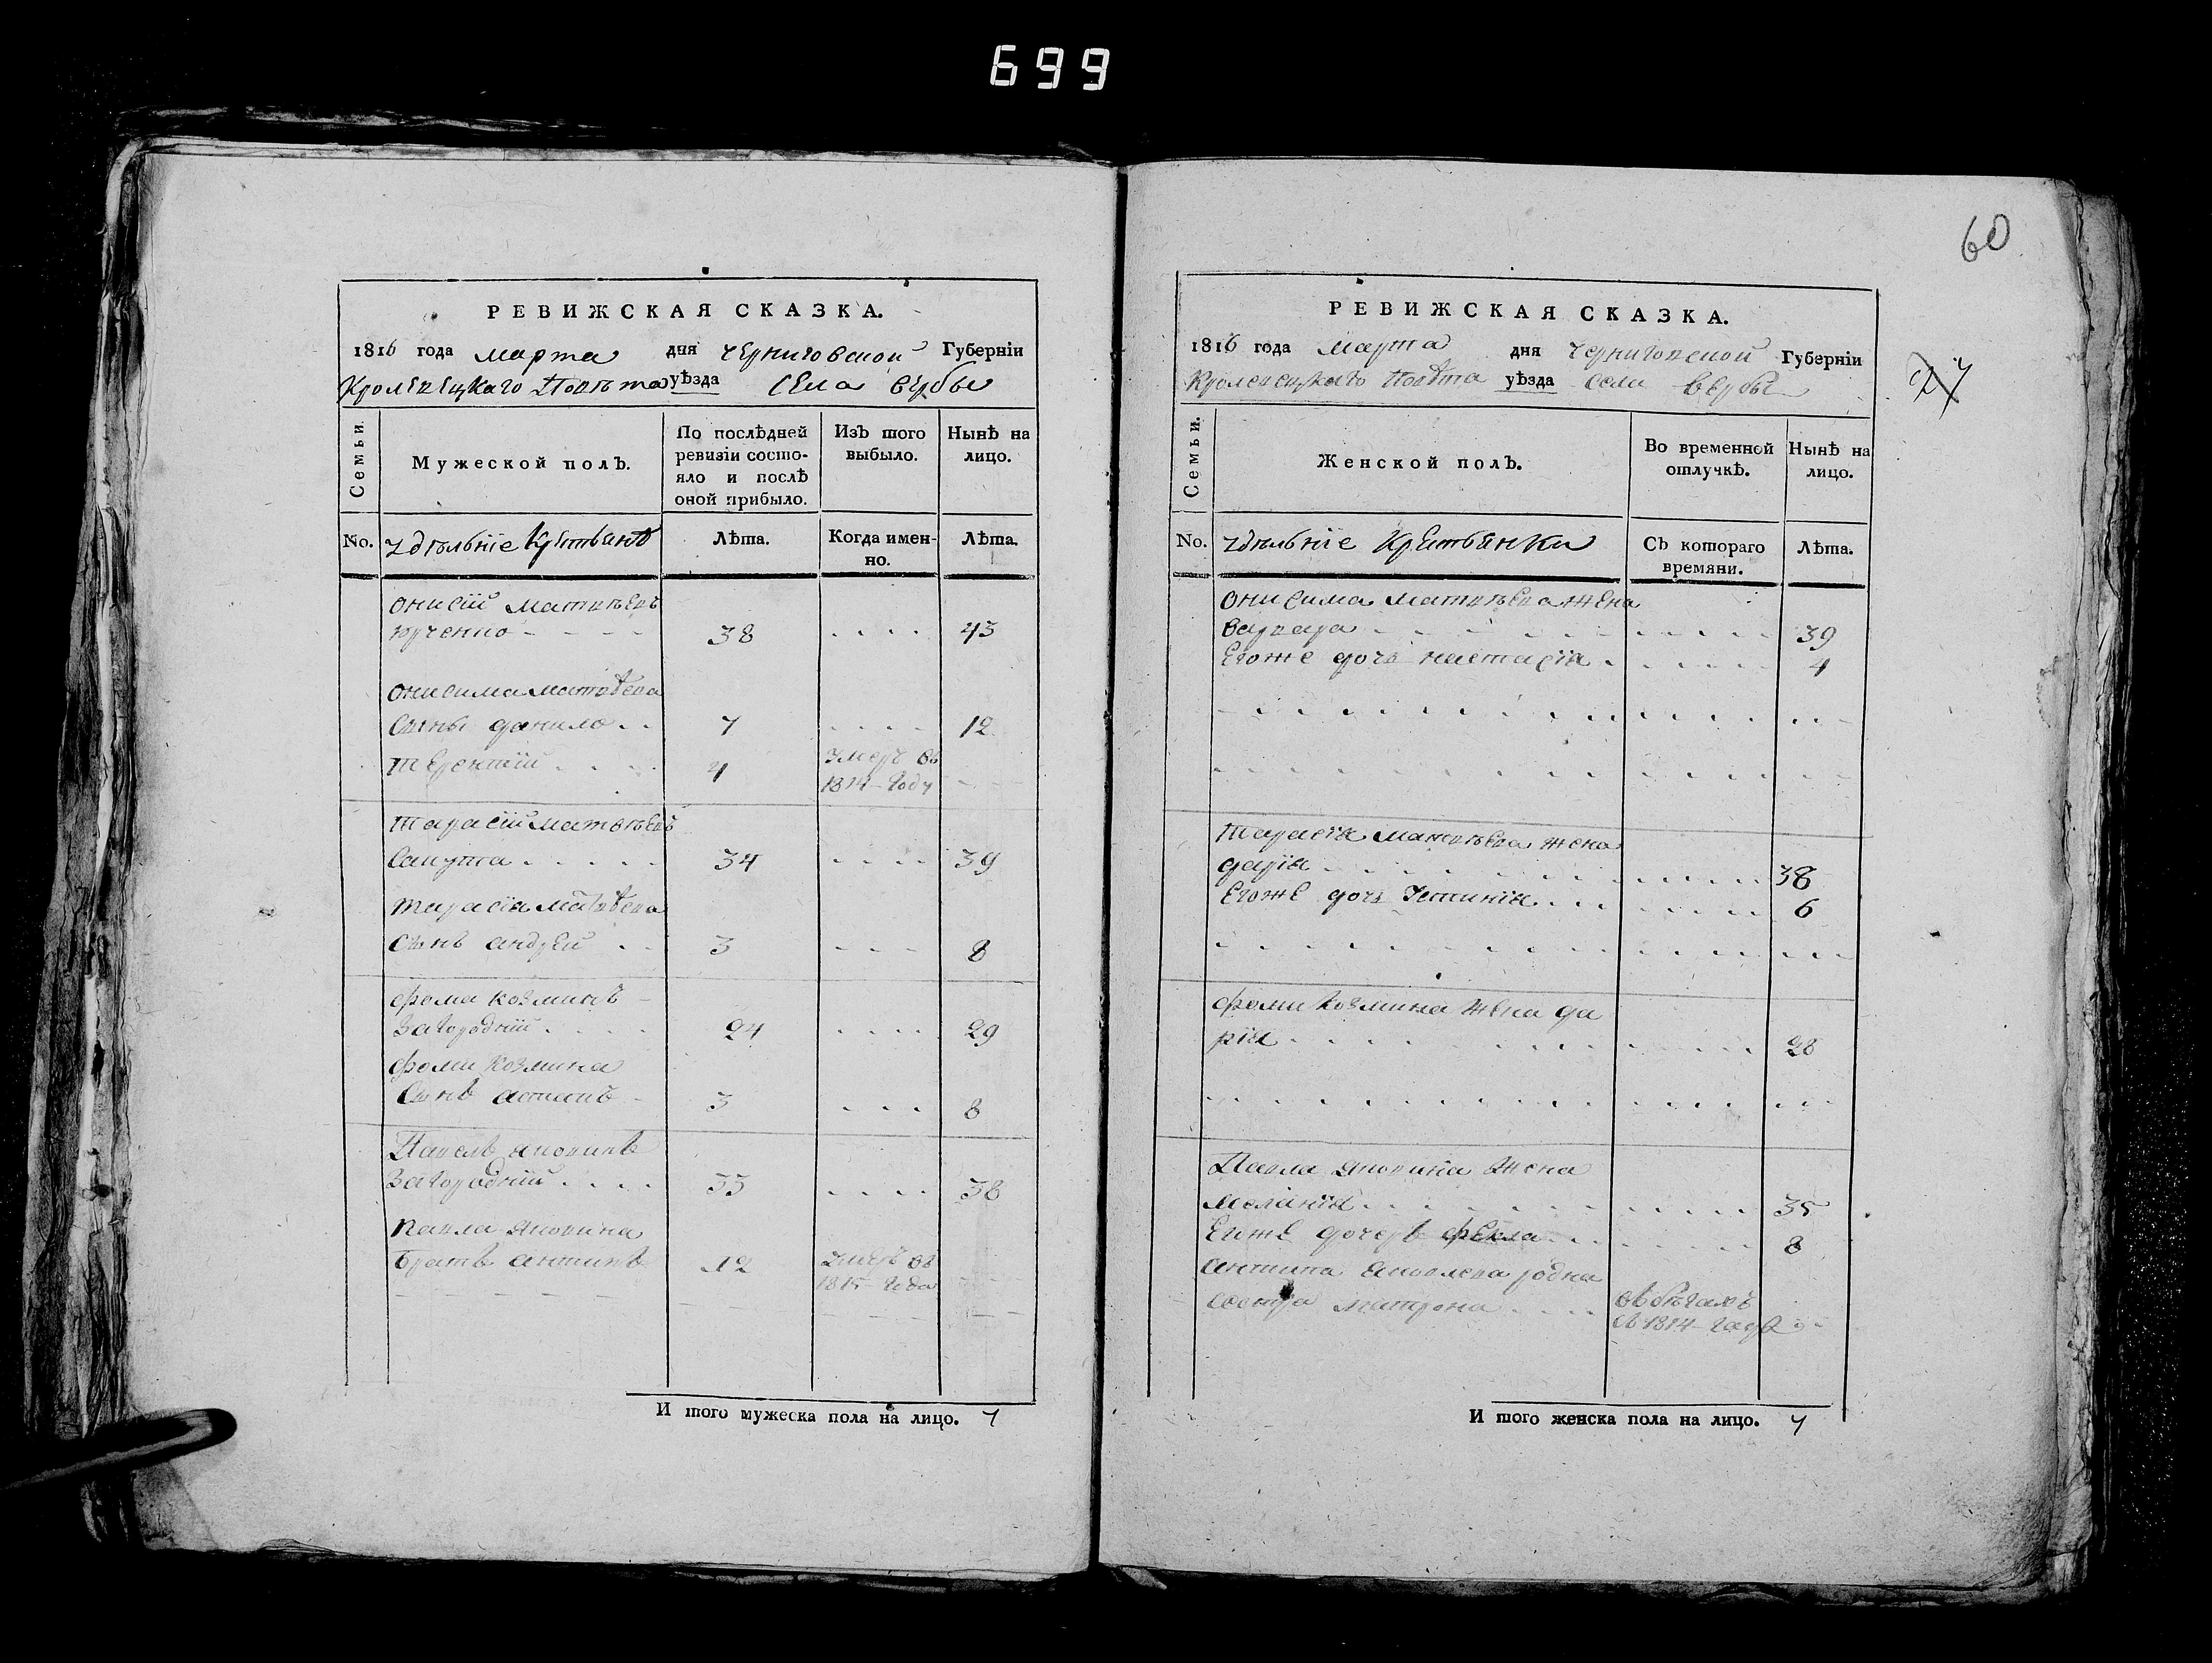 699
РЕВИЖСКАЯ СКАЗКА.
1816 года марта дня черниговской Губерніи
Кролевецкаго Повѣта уѣзда села вербы
Семьи.
Мужеской полъ.
По послѣдней ревизіи состо-
яло и послѣ оной прибыло.
Изъ того выбыло.
Нынѣ на лицо.
No. удѣльніе крестьянѣ Лѣта. Когда имен-
но. Лѣта.
онисій матвѣевъ
38 43
онисима матвѣева
сыны данило 7 12
терентій 4 умеръ въ
1814 году
тарасій матвѣевъ
34 39
тарасія матвѣева
сынъ андрей 3 8
фома козминъ
Загородній 24 29
фоми козмина
сынъ остапъ 3 8
Павелъ
Загородній 33 38
павла
братъ антипъ 12 умеръ въ
1815 года
И того мужеска пола на лицо. 7
60
27
РЕВИЖСКАЯ СКАЗКА.
1816 года марта дня черниговской Губерніи
Кролевецкаго повѣта уѣзда села вербы
Семьи.
Женской полъ.
Во временной отлучкѣ.
Нынѣ на лицо.
No. удѣльніе крестьянки Съ котораго
времяни. Лѣта.
онисима матвѣева жена
варвара 39
Егоже дочь настасія 4
тарасія матвѣева жена
дарія 38
Егоже дочь Устинія 6
фоми козмина жена да
рія 28
Павла жена
меланія 35
Егоже дочерь фекла 8
антипа яковлева родна
сестра матрона въ бѣгахъ
съ 1814 года
И того женска пола на лицо. 7